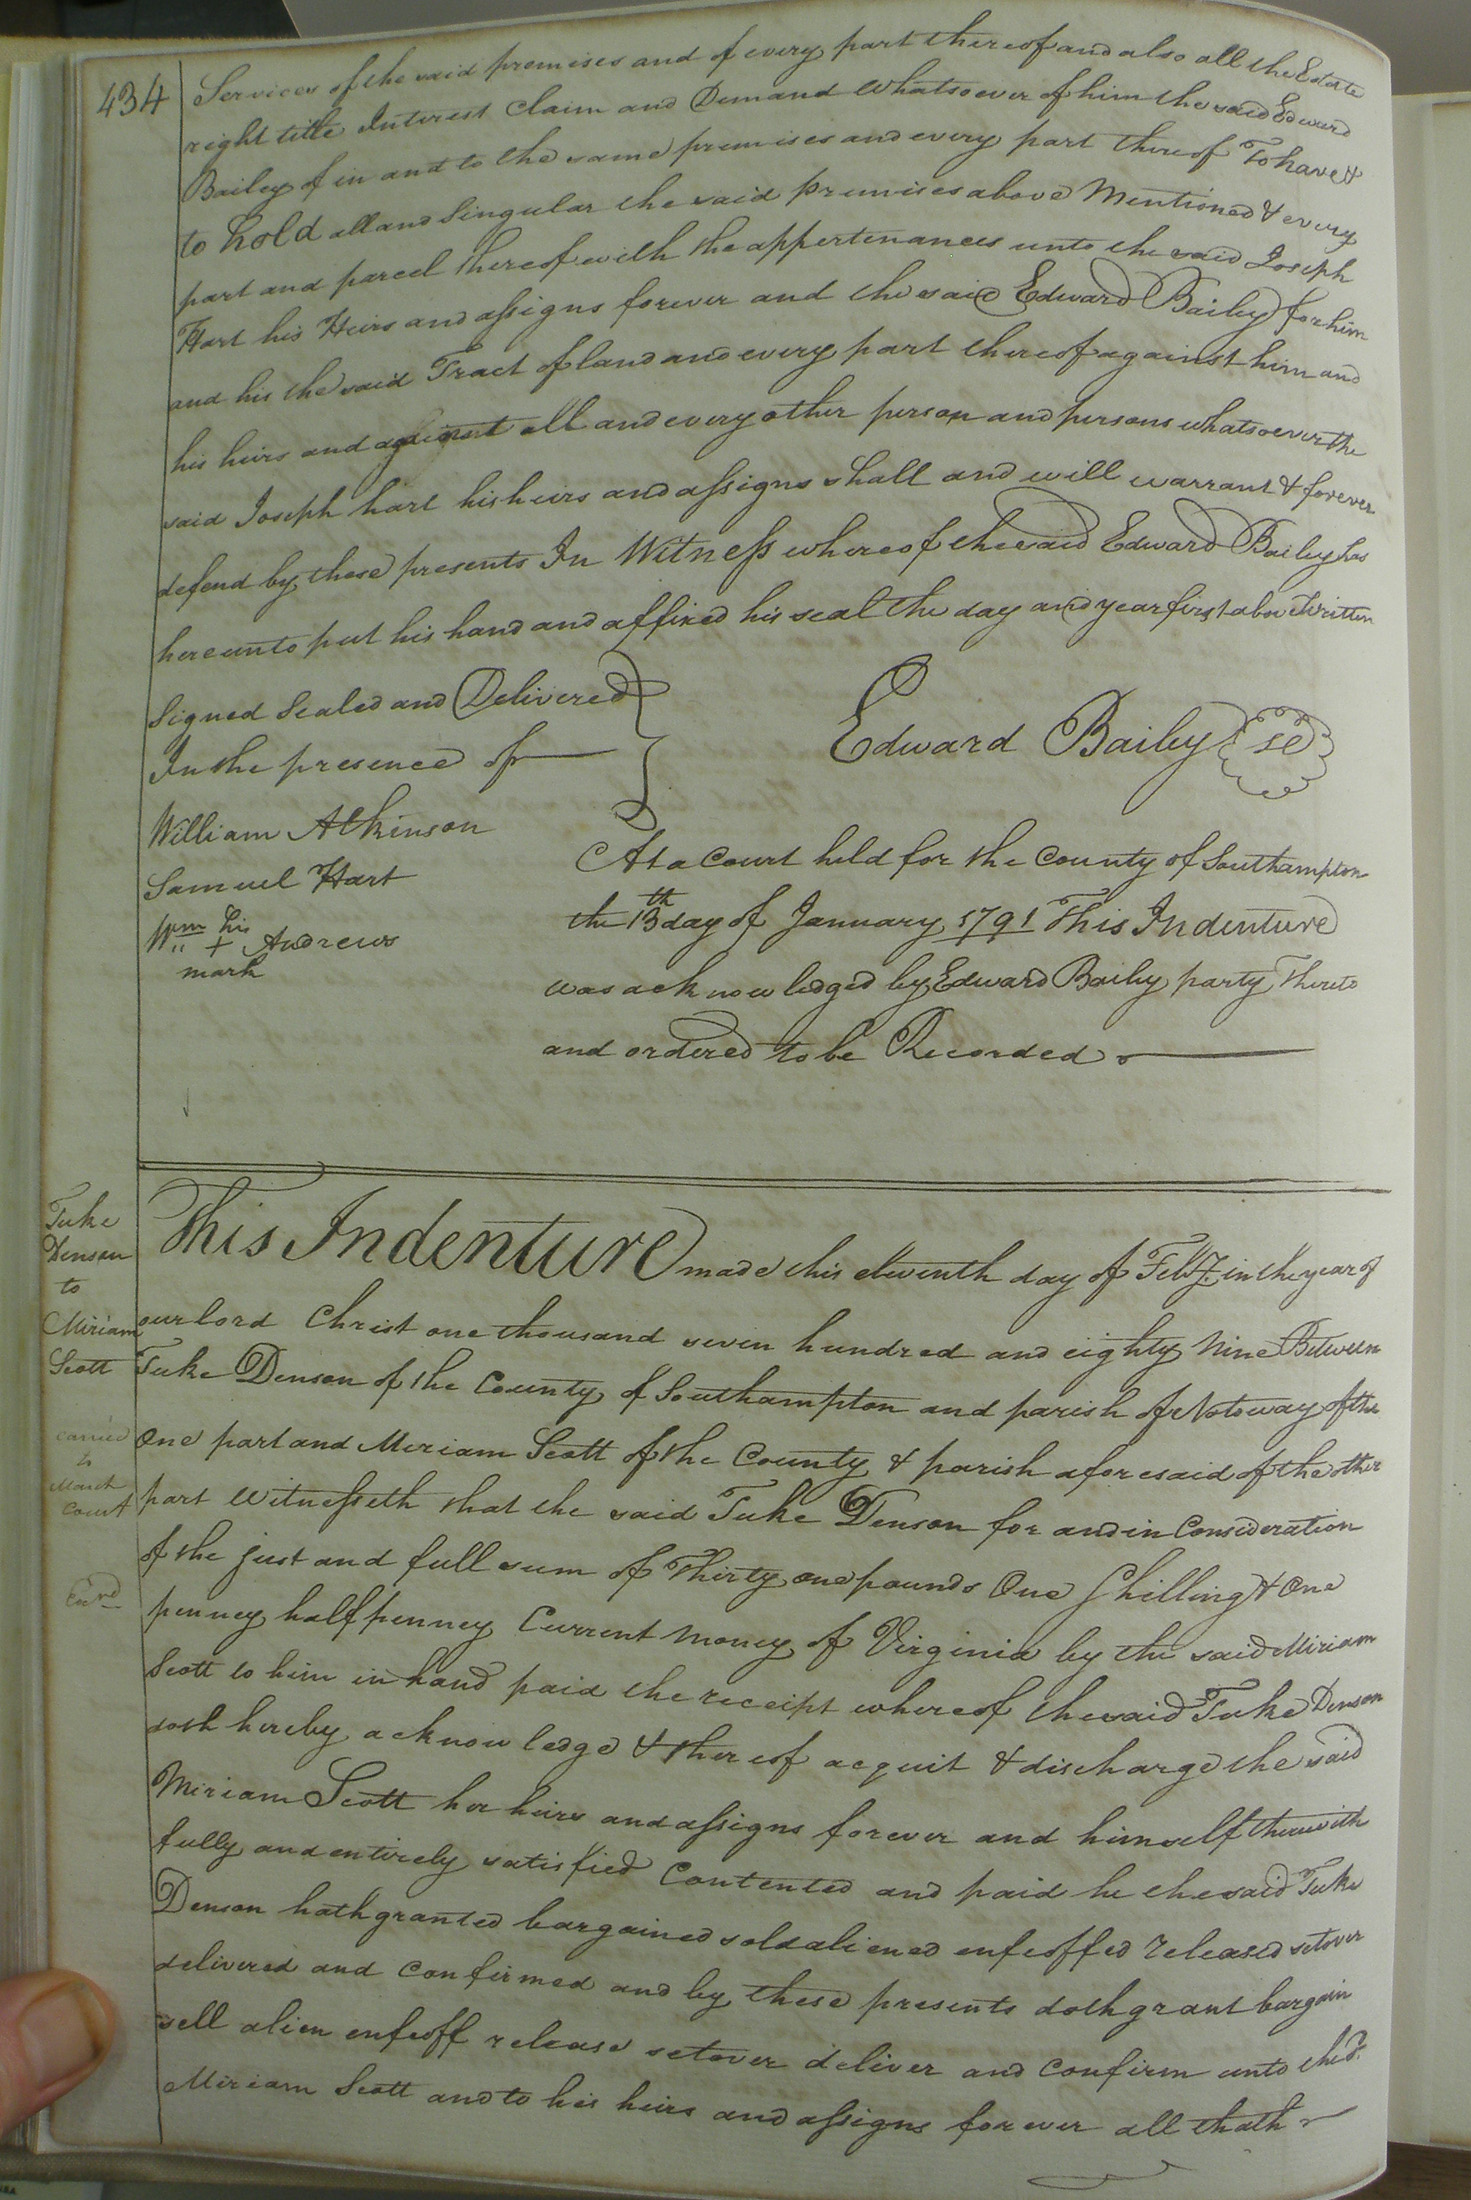 434
Services of the said premises and of every part thereof and also all the Estate
right title Interest Claim and Demand whatsoever of him the said Edward
Bailey of in and to the same premises and every part thereof To have &
to hold all and Singular the said premises above Mentioned & every
part and parcel thereof with the appertenances unto the said Joseph
Hart his Heirs and assigns forever and the said Edward Bailey for him
and his the said Tract of land and every part thereof against him and
his heirs and against all and every other person and persons whatsoever the
said Joseph hart his heirs and assigns shall and will warrant & forever
defend by these presents In Witness whereof the said Edward Bailey has
hereunto put his hand and affixed his seal the day and year first above Written
Signed Sealed and Delivered
In the presence of
Edward Bailey se
William Atkinson
Samuel Hart
Wm his + Andrews
mark
At a Court held for the County of Southampton
the 13th day of January 1791 This Indenture
was acknowledged by Edward Bailey party Thereto
and ordered to be Recorded
Tuke
Denson
to
Miriam
Scott
carried
to
March
Court
This Indenture made this eleventh day of Feby. in the year of
our lord Christ one thousand seven hundred and eighty Nine Between
Tuke Denson of the County of Southampton and parish of Notoway of the
One part and Miriam Scott of the County & parish aforesaid of the other
part Witnesseth that the said Tuke Denson for and in Consideration
of the just and full sum of Thirty one pounds One Shilling & One
penney half penney Current Money of Virginia by the said Miriam
Scott to him in hand paid the receipt whereof the said Tuke Denson
doth hereby acknowledge & thereof acquit & discharge the said
Miriam Scott her heirs and assigns forever and himself therewith
fully and entirely satisfied Contented and paid he the said Tuke
Denson hath granted bargained sold aliened enfeoffed released setover
delivered and confirmed and by these presents doth grant bargain
sell alien enfeoff release setover deliver and confirm unto the sd.
Miriam Scott and to his heirs and assigns forever all thath